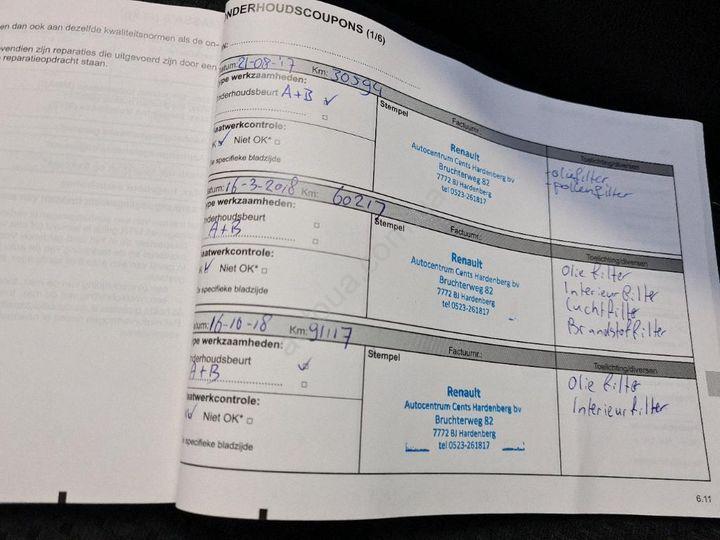 en dan ook aan dezelfde kwaliteitsnormen als de on-
vendien zijn reparaties die uitgevoerd zijn door een
reparatieopdracht staan.
NDERHOUDSCOUPONS (1/6)
tum: 21-08-'17 Km: 30594
pe werkzaamheden:
nderhoudsbeurt A+B
aatwerkcontrole:
K Niet OK*
e specifieke bladzijde
Stempel
Factuurnr.:
Renault
Autocentrum Cents Hardenberg bv
Bruchterweg 82
7772 BJ Hardenberg
tel 0523-261817
Toelichting/diversen
-oliefilter
-pollenfilter
tum: 16-3-2018 Km: 60217
pe werkzaamheden:
nderhoudsbeurt
A+B
aatwerkcontrole:
K Niet OK*
e specifieke bladzijde
Stempel
Factuurnr.:
Renault
Autocentrum Cents Hardenberg bv
Bruchterweg 82
7772 BJ Hardenberg
tel 0523-261817
Toelichting/diversen
Olie filter
Interieur filter
Luchtfilter
Brandstoffilter
tum: 16-10-18 Km: 91117
pe werkzaamheden:
nderhoudsbeurt
A+B
aatwerkcontrole:
Niet OK*
specifieke bladzijde
Stempel
Factuurnr.:
Renault
Autocentrum Cents Hardenberg bv
Bruchterweg 82
7772 BJ Hardenberg
tel 0523-261817
Toelichting/diversen
Olie filter
Interieurfilter
6.11